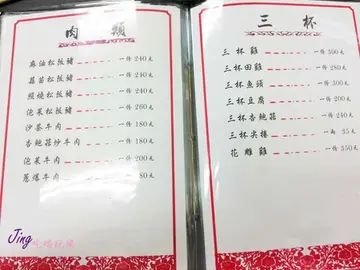 肉類
麻油松阪豬 一份 240元
蒜苗松阪豬 一份 240元
照燒松阪豬 一份 240元
泡菜松阪豬 一份 260元
沙茶牛肉 一份 180元
杏鮑菇炒牛肉 一份 180元
泡菜牛肉 一份 200元
蔥爆牛肉 180元
三杯
三杯雞 一份 300元
三杯田雞 一份 280元
三杯魚頭 一份 300元
三杯豆腐 一份 200元
三杯杏鮑菇 一份 240元
三杯 一份 35元
花雕雞 一份 350元
Jing